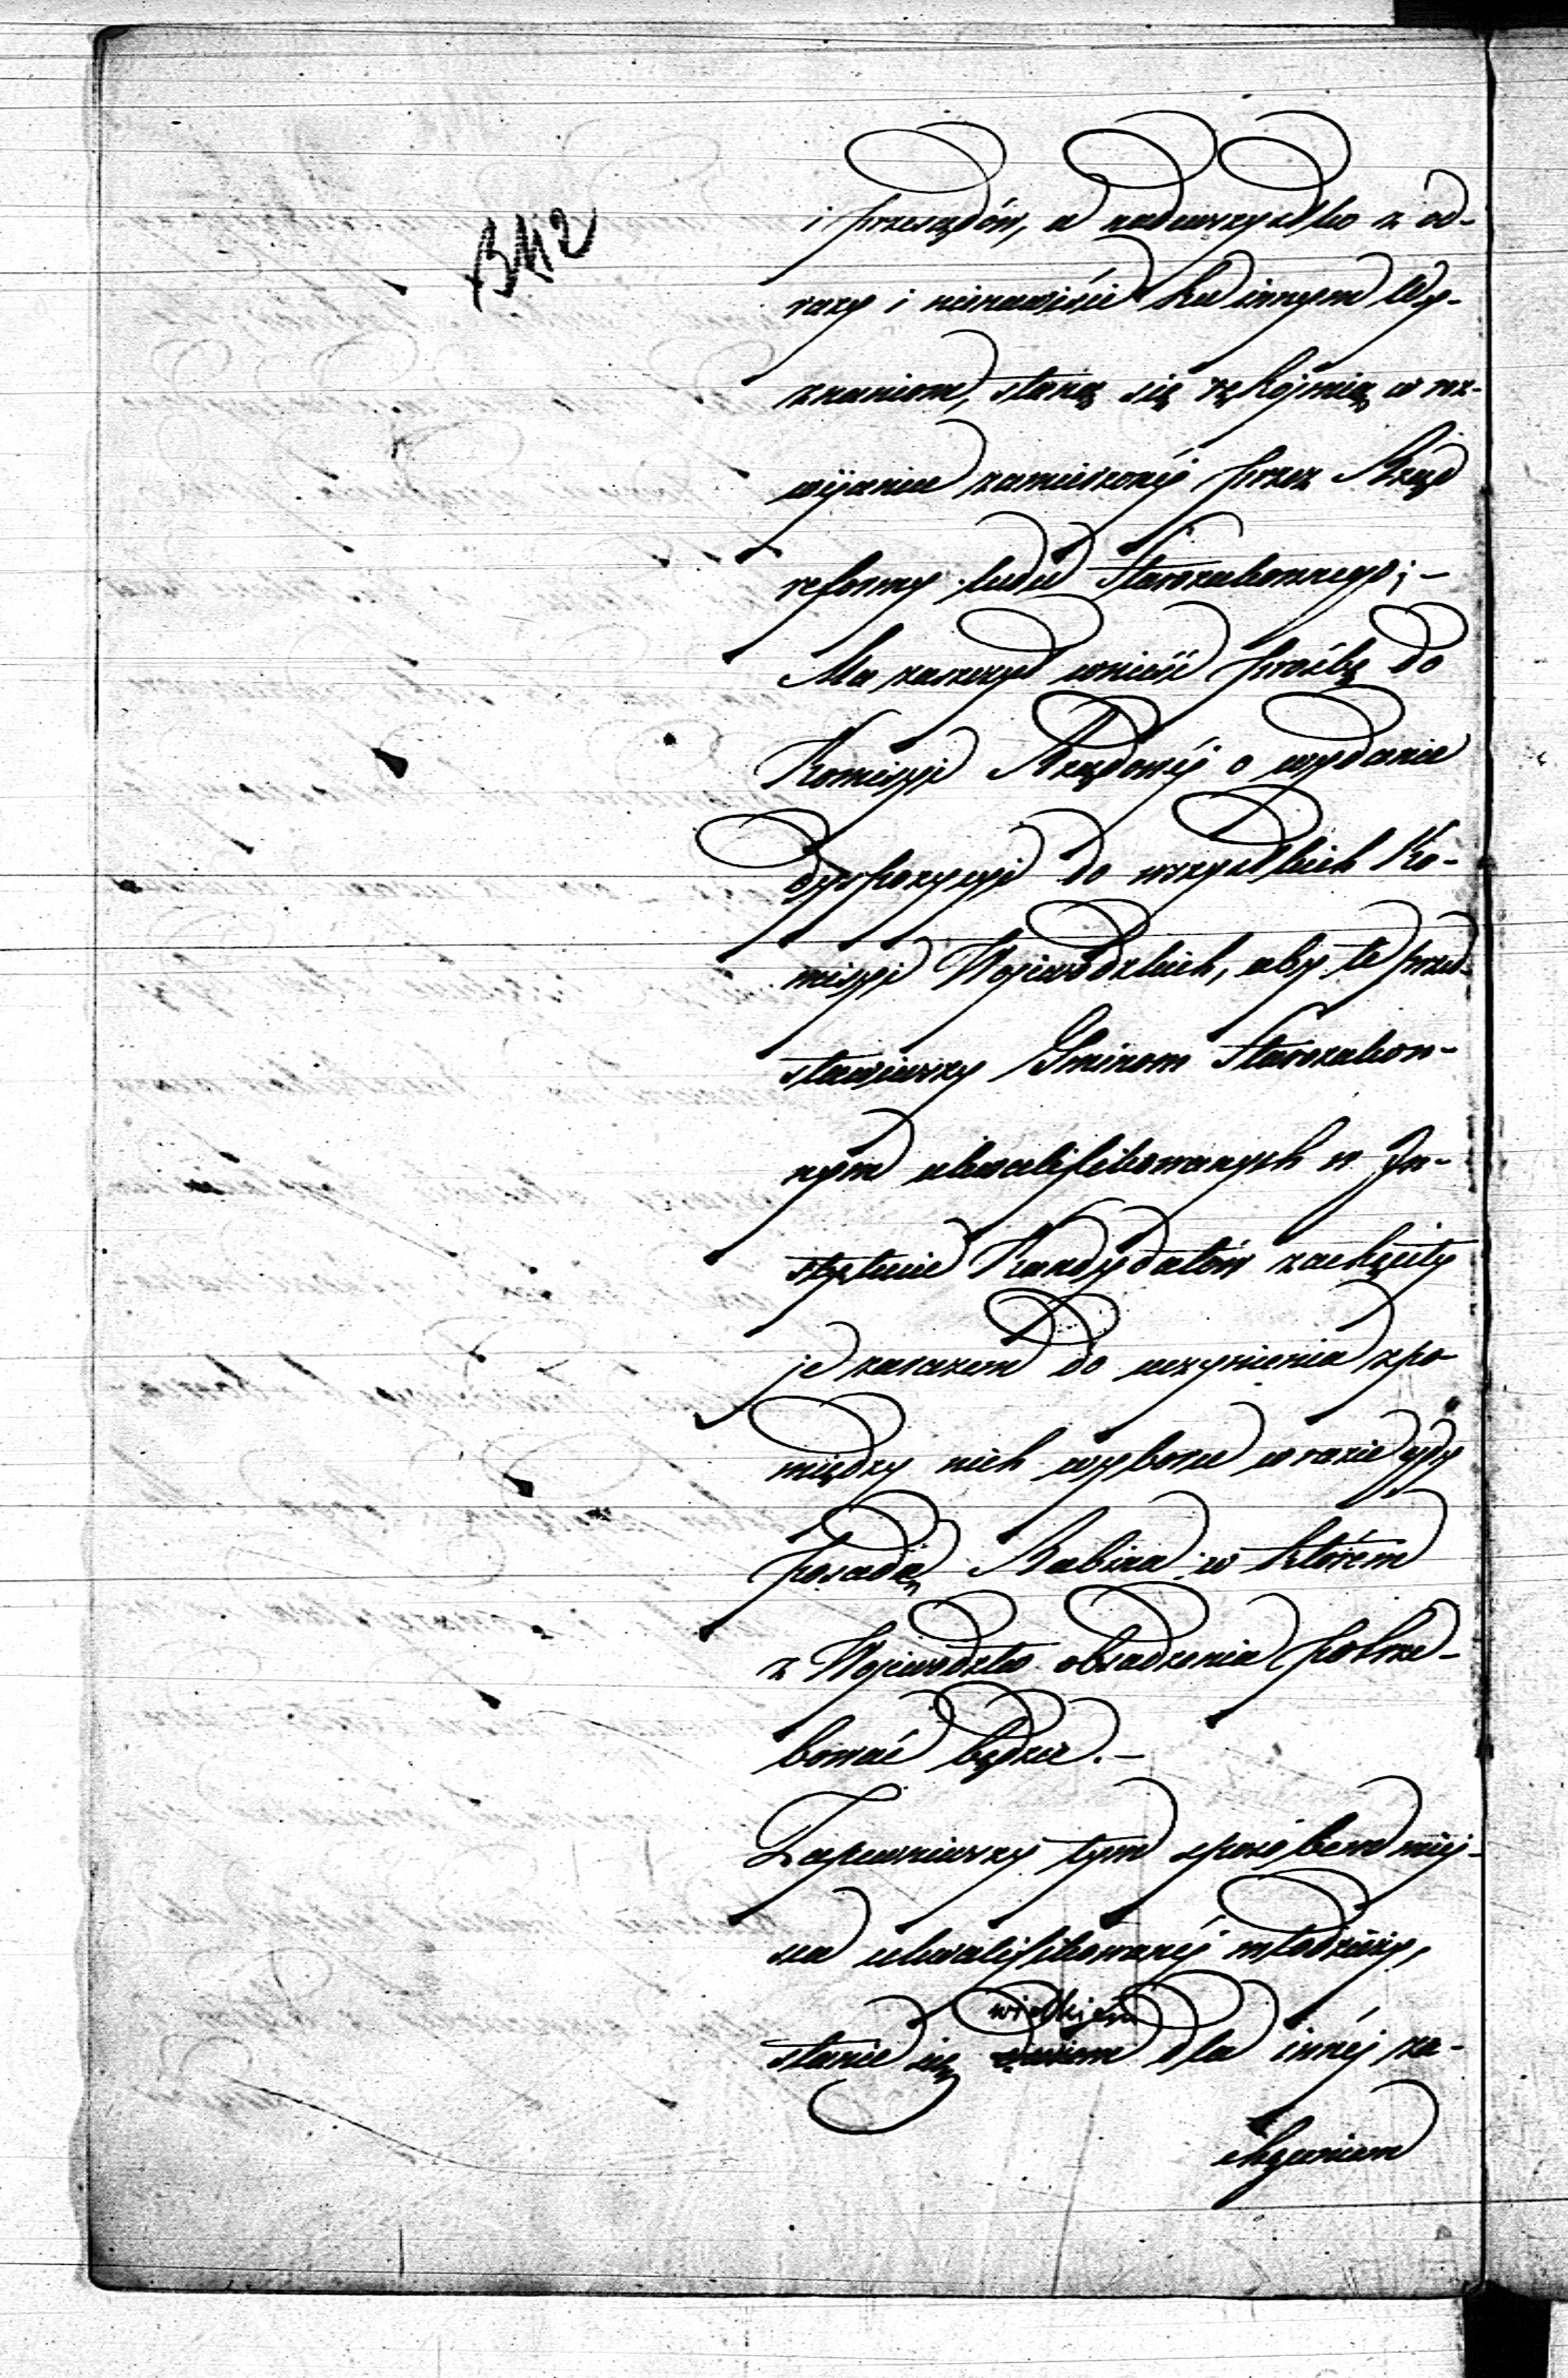 BM2
i przesądów, a nadewszystko z od-
razy i nienawiści ku innym Wy-
znaniom, staną się rękojmią w roz-
wijaniu zamierzonéj przez Rząd
reformy ludu Starozakonnego; –
Ma zaszczyt wnieść prośbę do
Komissyi Rządowéj o wydanie
dyspozycyi do wszystkich Ko-
missyi Wojewódzkich, aby te przed-
stawiwszy Gminom Starozakon-
nym ukwalifikowanych w In-
stytucie Kandydatów zachęciły
je zarazem do uczynienia zpo-
między nich wyboru w razie gdy
posada Rabina w którém
z Województw obsadzenia potrze-
bować będzie. –
Zapewniwszy tym sposobem miej-
sca ukwalifikowanéj młodzieży,
stanie się wielkiém dla innéj za-
chęceniem